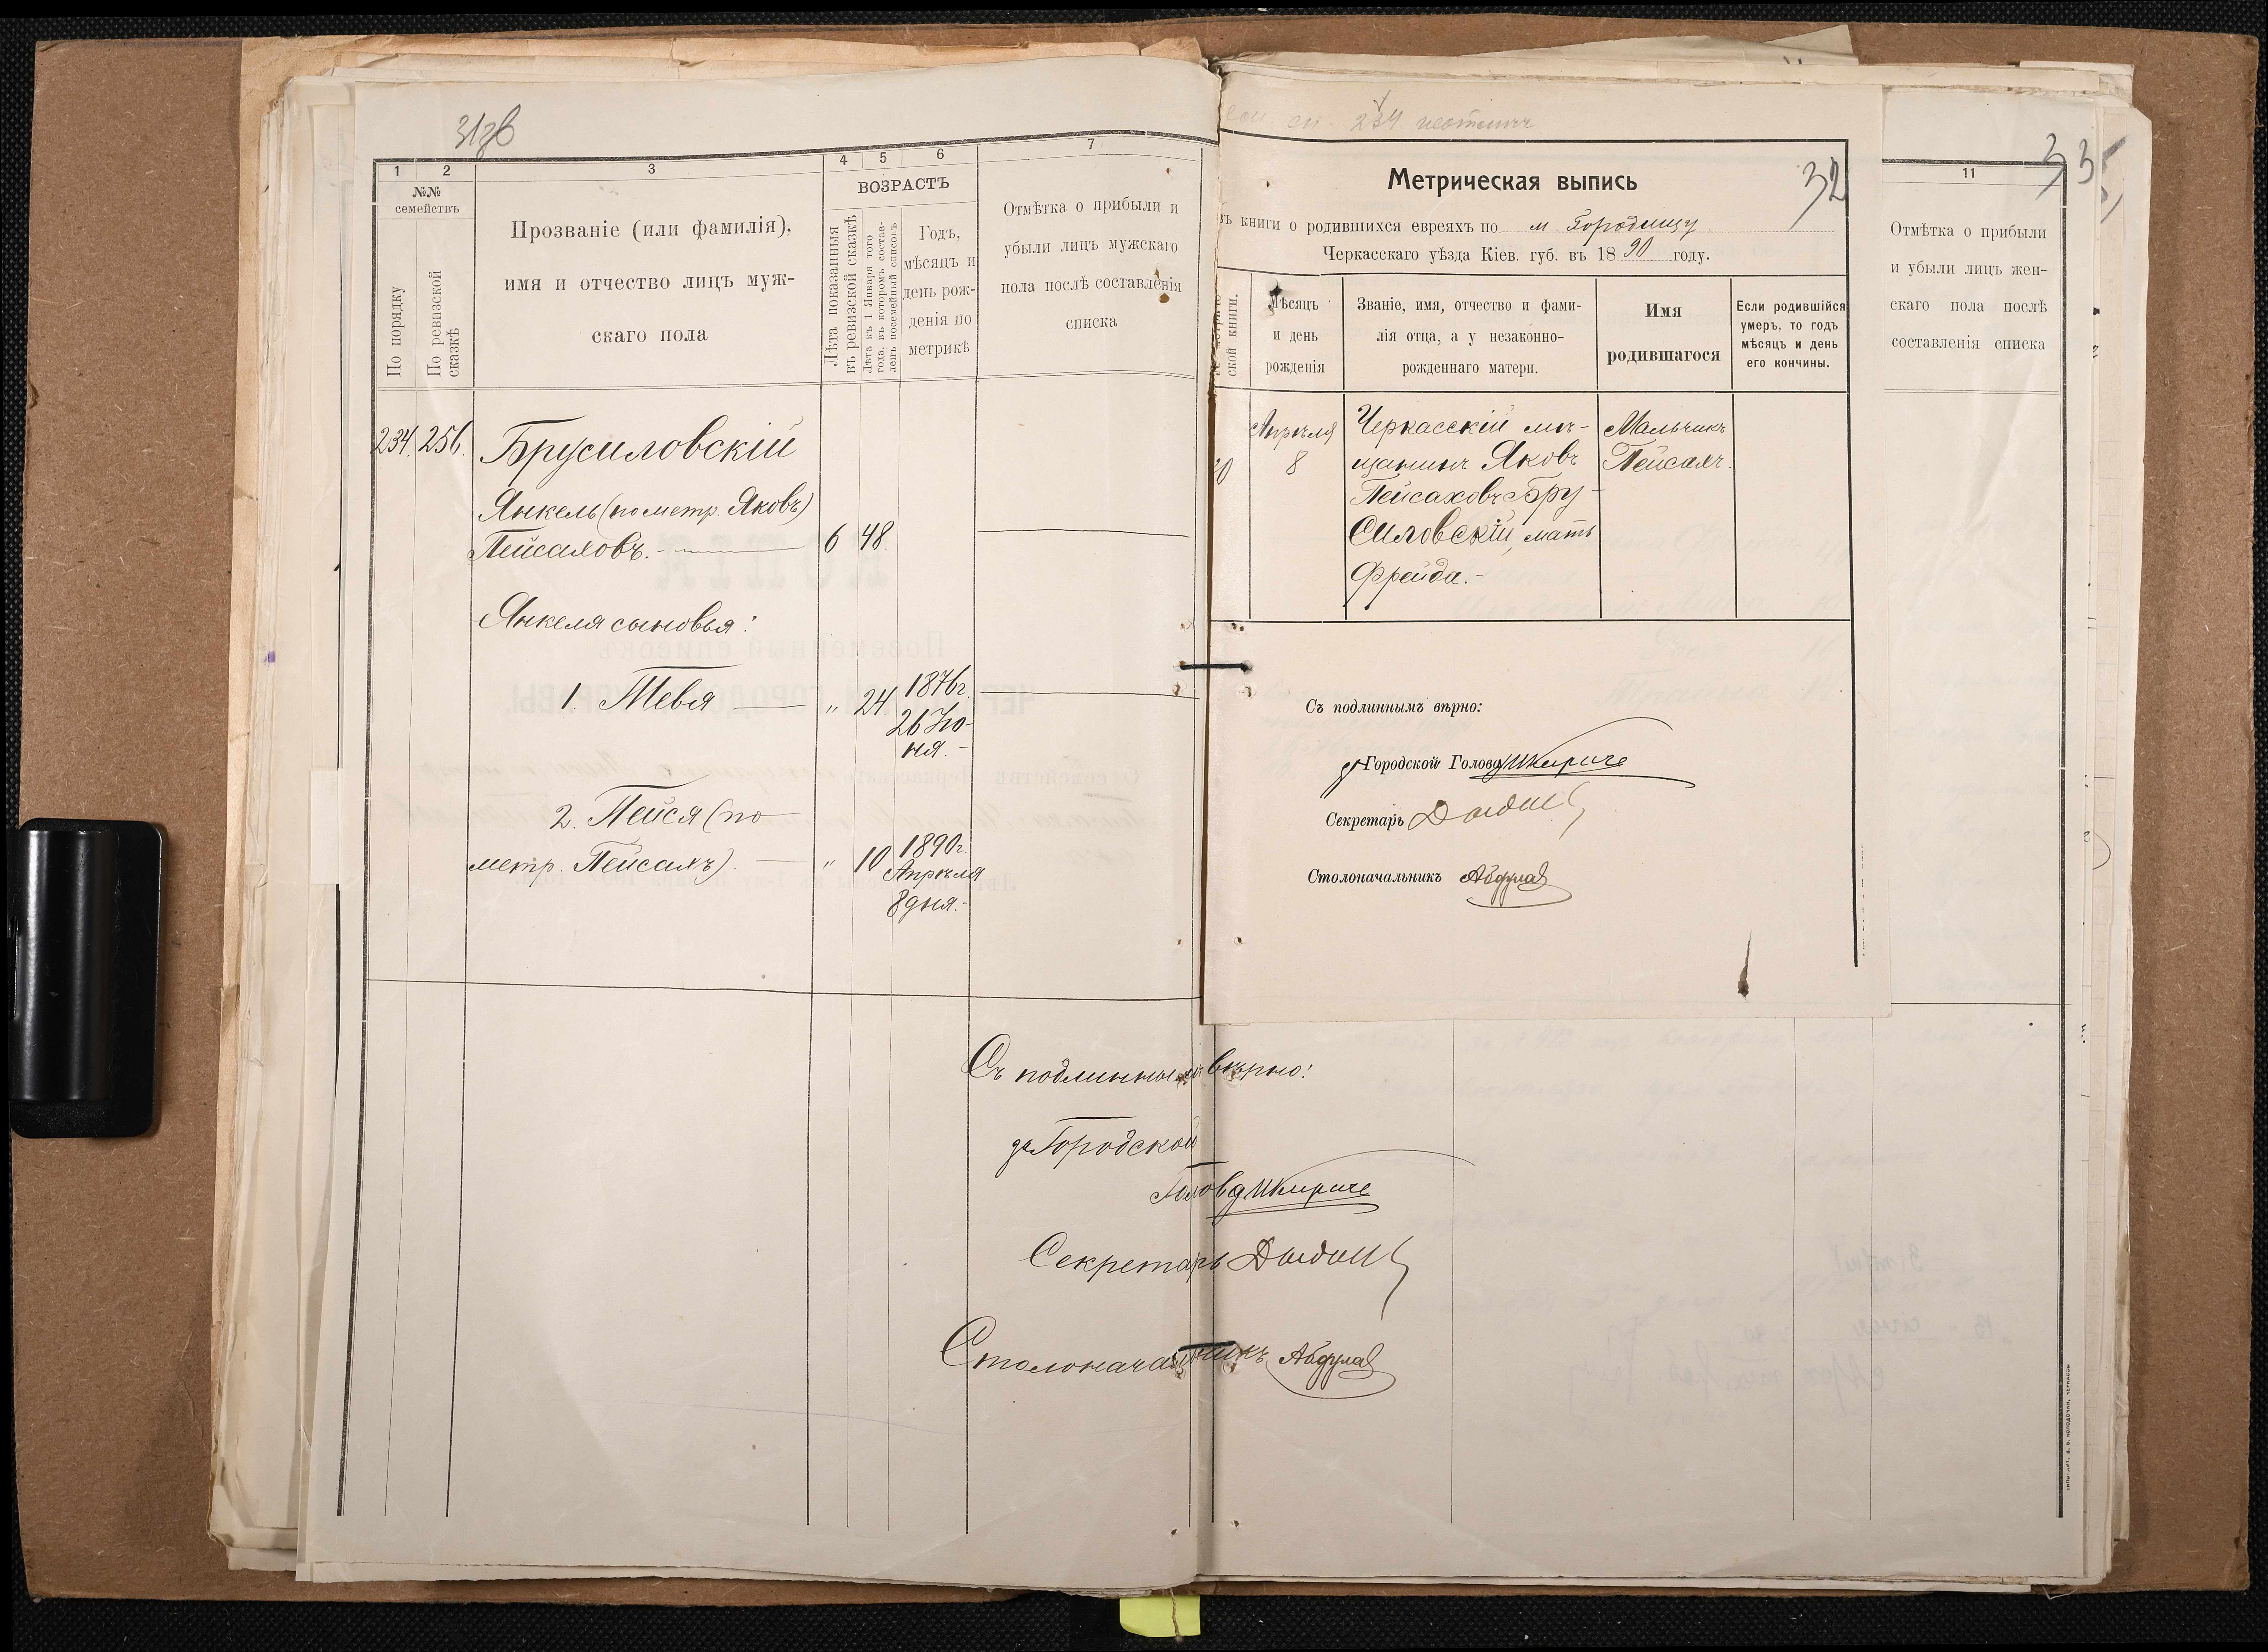 31зв
1 2 3 4 5 6 7
№№
семействъ
По порядку
По ревизской
сказкѣ
Прозваніе (или фамилія),
имя и отчество лицъ муж-
скаго пола
ВОЗРАСТЪ
Лѣта показанныя
въ ревизской сказкѣ
Лѣта къ 1 Января того
года, въ которомъ состав-
ленъ посемейный списокъ
Годъ,
мѣсяцъ и
день рож-
денія по
метрикѣ
Отмѣтка о прибыли и
убыли лицъ мужскаго
пола послѣ составленія
списка
234. 256. Брусиловскій
Янкель (по метр. Яковъ)
Пейсаховъ. — 6 48.
Янкеля сыновья:
1. Тевя — „ 24 1876г.
26 Iю-
ня. –
2. Пейся (по
метр. Пейсахъ). — „ 10 1890г.
Апрѣля
8 дня. –
Съ подлиннымъ вѣрно:
Городской
Голова
Секретарь
Столоначальникъ
234
32
Метрическая выпись
въ книги о родившихся евреяхъ по м. Городищу
Черкасскаго уѣзда Кіев. губ. въ 1890 году.
ской книги.
Мѣсяцъ
и день
рожденія
Званіе, имя, отчество и фами-
лія отца, а у незаконно-
рожденнаго матери.
Имя
родившагося
Если родившійся
умеръ, то годъ
мѣсяцъ и день
его кончины.
Апрѣля
8
Черкасскій мѣ-
щанинъ Яковъ
Пейсаховъ Бру-
силовскій, мать
Фрейда. –
Мальчикъ
Пейсахъ.
Съ подлиннымъ вѣрно:
Городской Голова
Секретарь
Столоначальникъ
33
11
Отмѣтка о прибыли
и убыли лицъ жен-
скаго пола послѣ
составленія списка